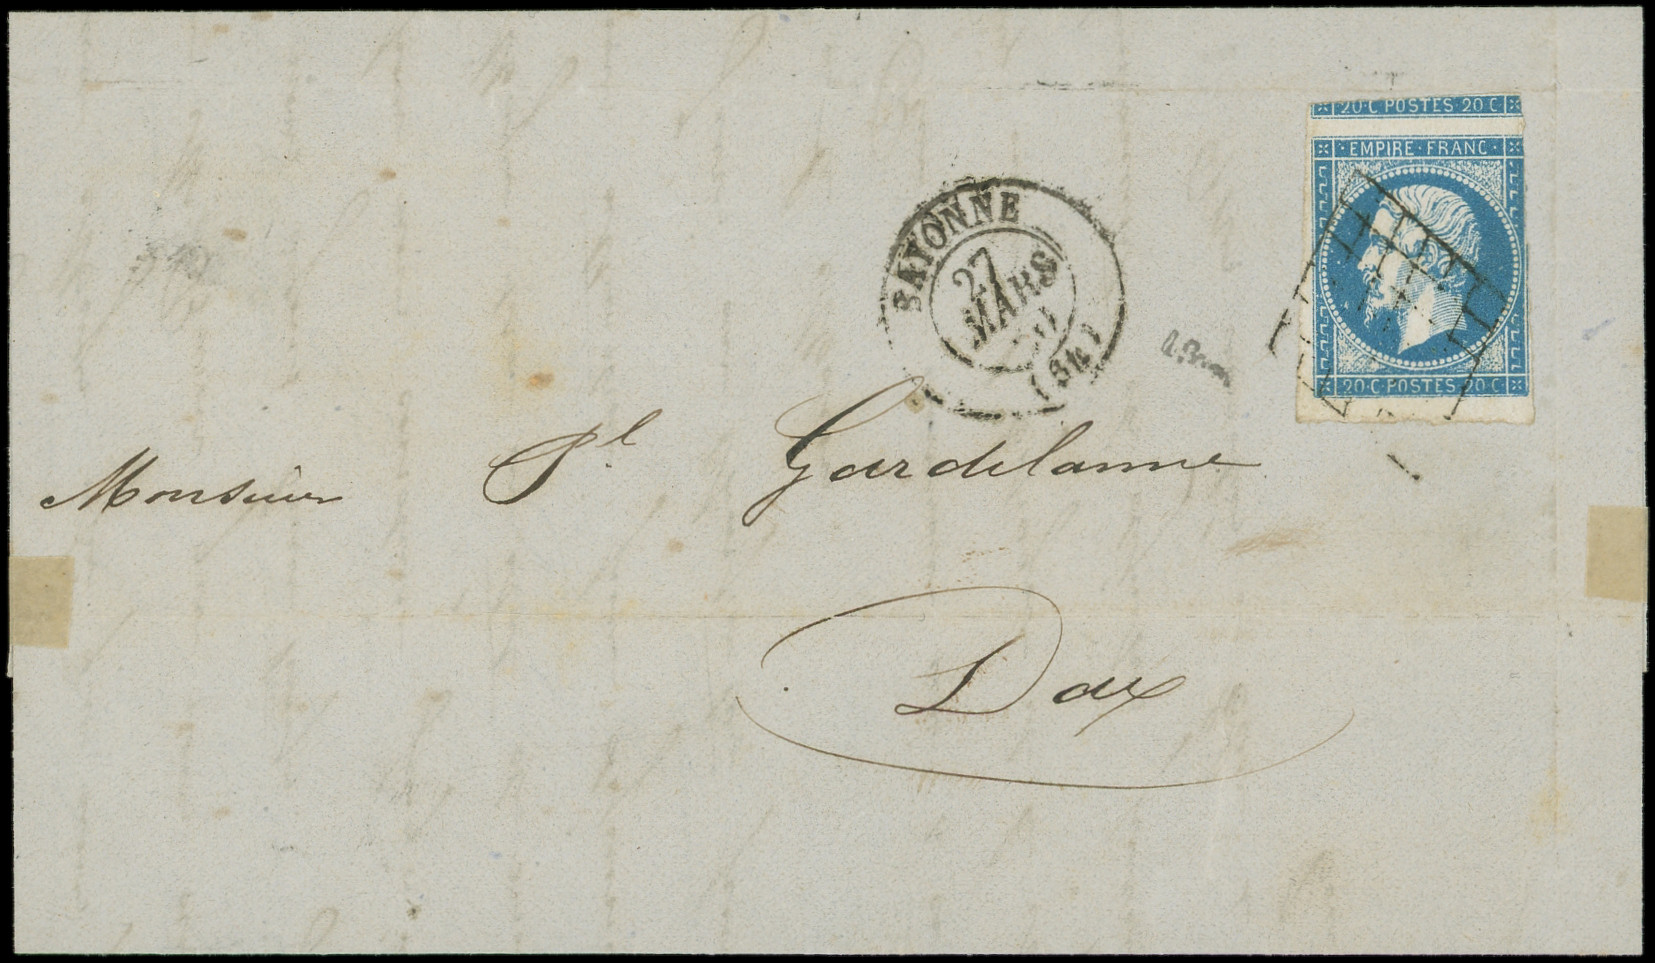 20·C POSTES·20 C
·EMPIRE·FRANC·
20·C POSTES·20 C
BAYONNE
27
MARS
(64)
Monsieur Pl Gardilanne
Dax